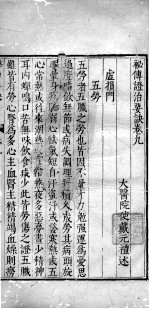 秘傳證治要訣卷九
大醫院使戴元禮述
虛損門
五勞
五勞者五臟之勞也皆因不量才力勉強運為憂思
過度嗜飲無節或病失調理將積久成勞其病頭旋
眼暈身疼脚弱心怯氣短自汗盜汗或發寒熱或五
心常熱或往來潮熱或骨蒸作熱夜多惡夢晝少精神
耳內蟬鳴口苦無味飲食減少此皆勞傷之證五臟
雖皆有勞心腎為多心主血腎主精精竭血燥則勞